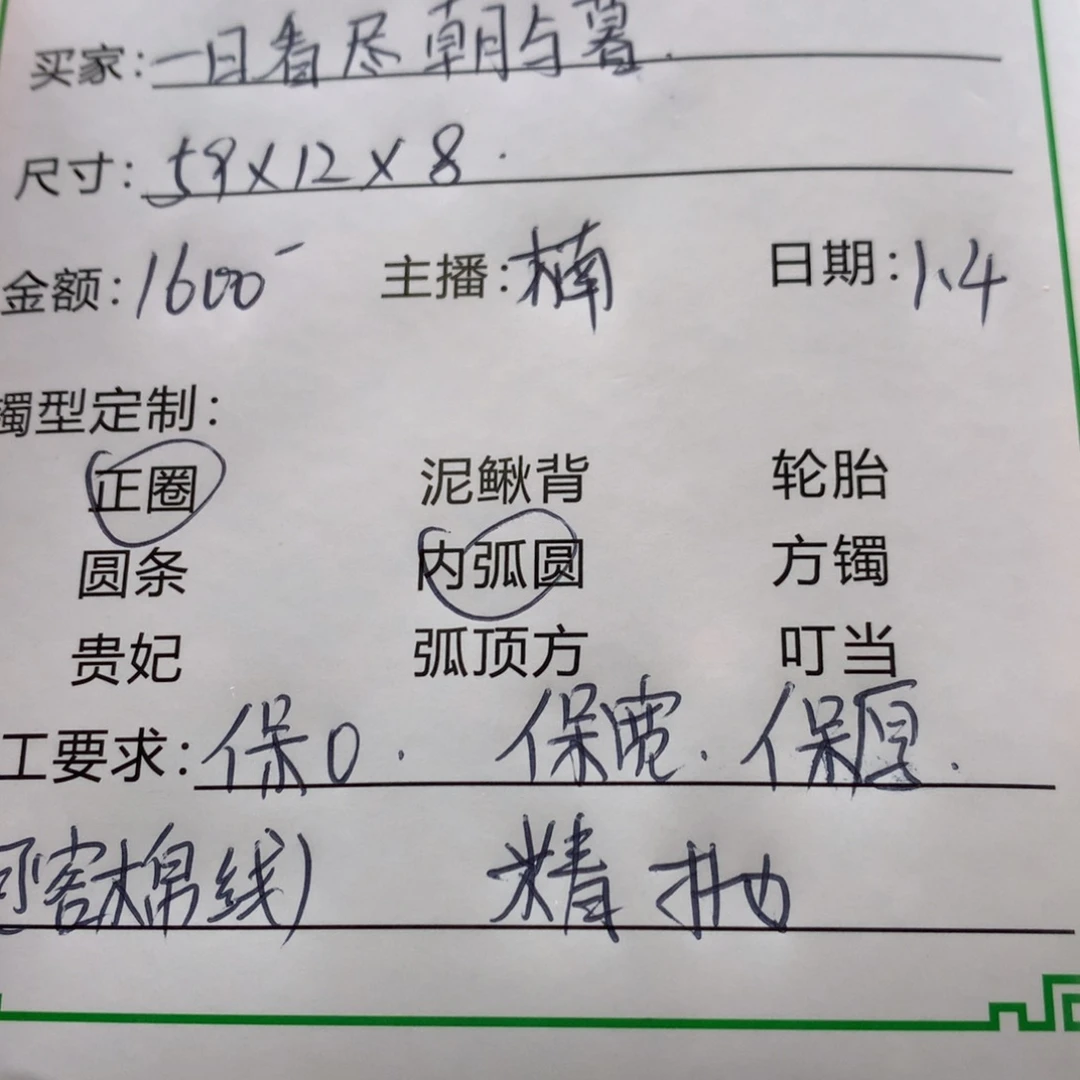 买家:一日看尽朝与暮.
尺寸:59×12×8.
金额:1600- 主播:楠 日期:1.4
镯型定制:
正圈 泥鳅背 轮胎
圆条 内弧圆 方镯
贵妃 弧顶方 叮当
工要求:保0. 保宽. 保厚.
客棉线) 精抛